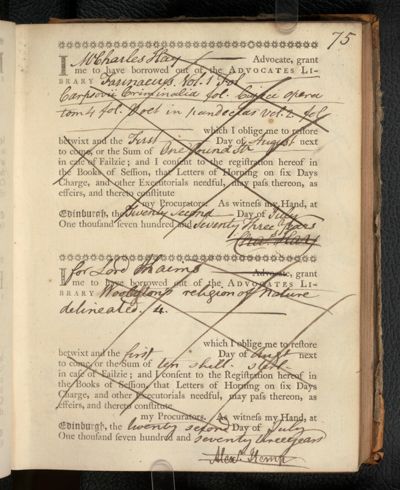 75
I Mr Charles Hay Advocate, grant
me to have borrowed out of the ADVOCATES LI-
BRARY Farinaceus Vol. 1 fol
Carpsovii Criminalia fol. opera
tom 4 fol. Voet in pandectas vol. 2 fol
which I oblige me to reſtore
betwixt and the First Day of August next
to come, or the Sum of One pound Str
in caſe of Failzie; and I conſent to the regiſtration hereof in
the Books of Seſſion, that Letters of Horning on ſix Days
Charge, and other Executorials needful, may paſs thereon, as
effeirs, and thereto conſtitute
my Procurators. As witneſs my Hand, at
Edinburgh, the Twenty Second Day of July
One thouſand ſeven hundred and seventy Three years
Chas. Hay
I for Lord Kaims Advocate, grant
me to have borrowed out of the ADVOCATES LI-
BRARY Woolastons religion of Nature
delineated. 4.
which I oblige me to reſtore
betwixt and the first Day of Augt next
to come, or the Sum of ten shill. sterl
in caſe of Failzie; and I conſent to the Regiſtration hereof in
the Books of Seſſion, that Letters of Horning on ſix Days
Charge, and other Executorials needful, may paſs thereon, as
effeirs, and thereto conſtitute
my Procurators. As witneſs my Hand, at
Edinburgh, the twenty second Day of July
One thouſand ſeven hundred and seventy three years
Alexr.